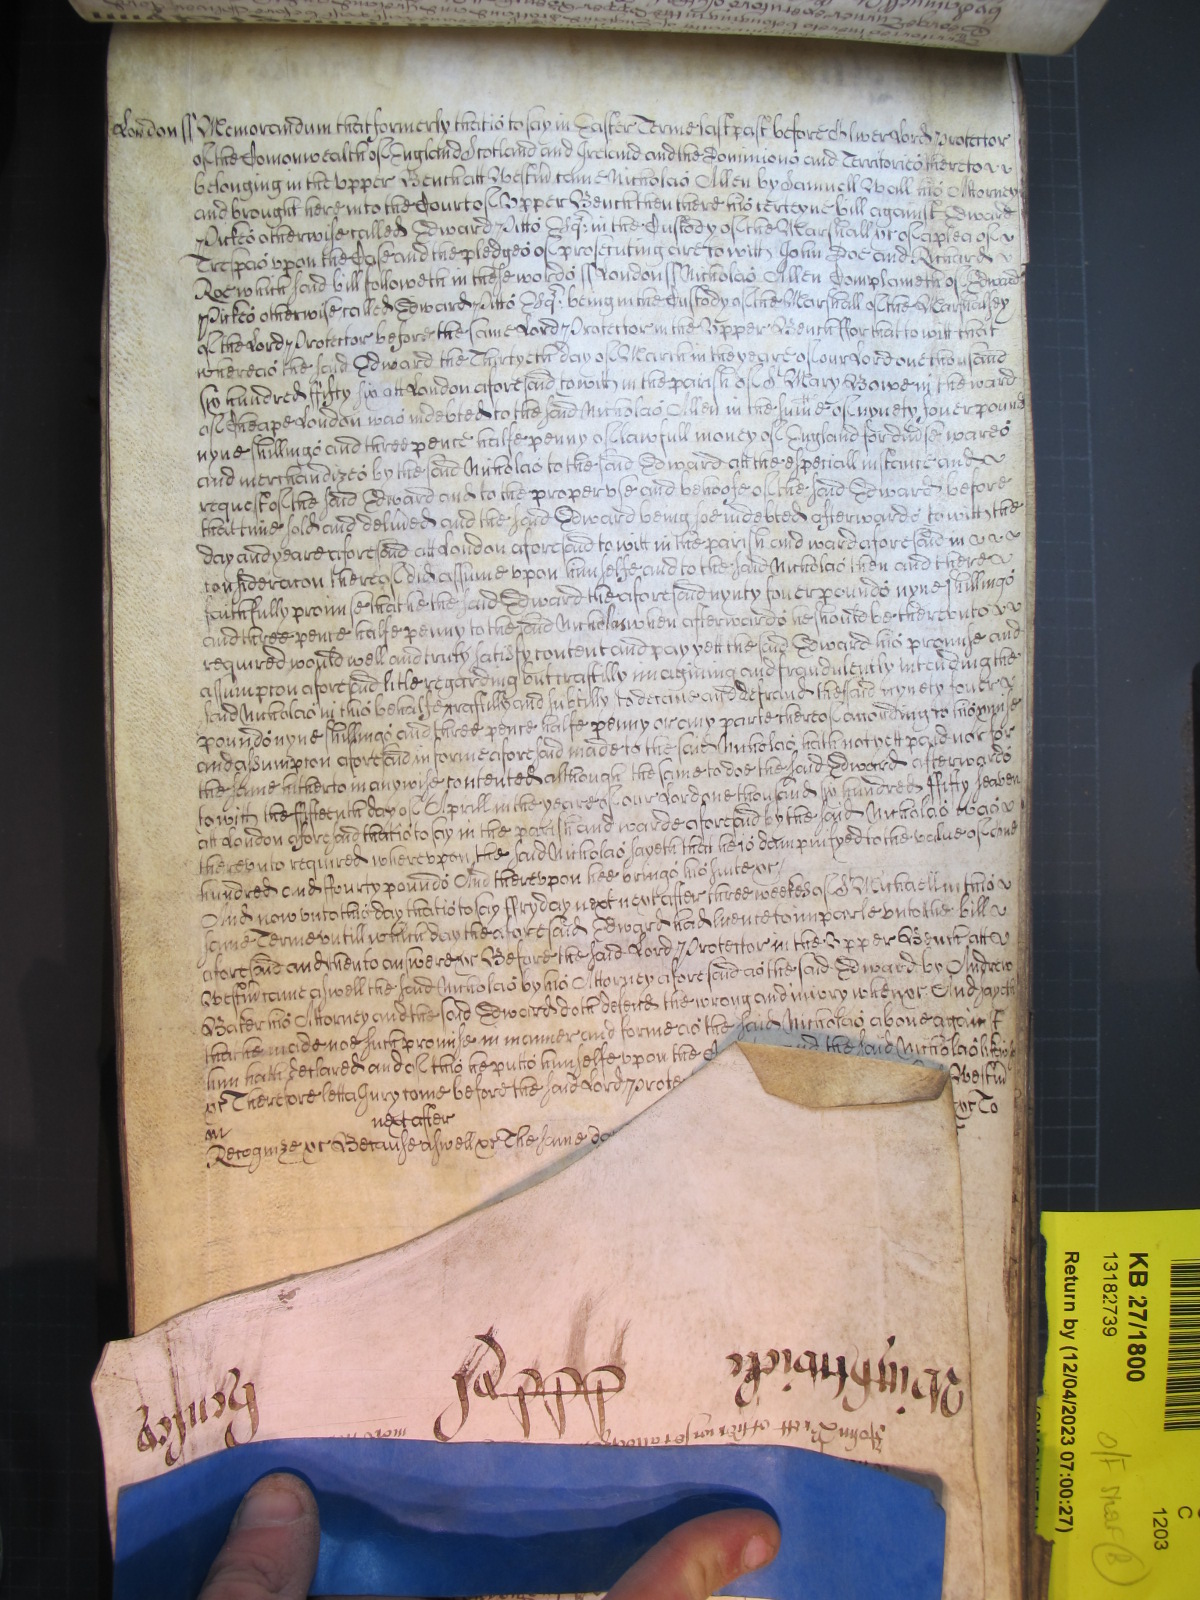 London ss Memorandum that formerly that is to say in Easter Terme last past before Oliver Lord Protector
of the Comonwealth of England Scotland and Ireland and the Dominions and Territories thereto
belonging in the Upper Bench att Westm came Nicholas Allen by Samuell Wall his Attorney
and brought here into the Court of Upper Bench then there his certeyne bill against Edward
Pickes otherwise called Edward Pitts Esq: in the Custody of the Marshall &c of a plea of
Trespas vpon the Case and the pledges of prosecuting are to witt John Doe and Richard
Roe which said bill followeth in these words ss London ss Nicholas Allen Complaineth of Edward
Pickes otherwise called Edward Pitts Esq: being in the Custody of the Marshall of the Marshalsey
of the Lord Protector before the same Lord Protector in the Upper Bench ffor that to witt that
whereas the said Edward the Thirtyeth day of March in the yeare of our Lord one thousand
six hundred ffifty six att London aforesaid to witt in the parish of St Mary Bowe in the ward
of Cheape London was indebted to the said Nicholas Allen in the sume of nynety fower pound
nyne shillings and three pence halfe penny of lawfull money of England for diverse wares
and merchandizes by the said Nicholas to the said Edward att the especiall instance and
request of the said Edward and to the proper vse and behoofe of the said Edward before
that time sold and delivred and the said Edward being soe indebted afterwards to witt the
day and yeare aforesaid att London aforesaid to witt in the parish and ward aforesaid in
consideracon thereof did assume vpon himselfe and to the said Nicholas then and there
faithfully promise that he the said Edward the aforesaid nynty fower pounds nyne shillings
and three pence halfe penny to the said Nicholas when afterwards he should be therevnto
required would well and truly satisfy content and pay yett the said Edward his promise and
assumpton aforesaid litle regarding but craftily imagining and fraudulently intending the
said Nicholas in this behalfe craftily and subtilly to deceive and defraud the said nynety fower
pounds nyne shillings and three pence halfe penny or any parte thereof according to his pmise
and assumpton aforesaid in forme aforesaid made to the said Nicholas hath not yett paid nor for
the same hitherto in anywise contented although the same to doe the said Edward afterwards
to witt the fifteenth day of Aprill in the yeare of our Lord one thousand six hundred ffifty seaven
att London aforesaid that is to say in the parish and warde aforesaid by the said Nicholas was
therevnto required wherevpon the said Nicholas sayeth that he is dampnifyed to the value of one
hundred and ffourty pounds And therevpon hee brings his suite &c/
And now vnto this day that is to say ffryday next after three weekes of St Michaell in this
same Terme vntill which day the aforesaid Edward had licence to imparle vnto the bill
aforesaid and then to answere &c Before the said Lord Protector in the Upper Bench att
Westm came aswell the said Nicholas by his Attorney aforesaid as the said Edward by Andrew
Baker his Attorney and the said Edward doth defend the wrong and iniury when &c And sayeth
that he made noe such promise in manner and forme as the said Nicholas above against
him hath declared and of this he putts himselfe vpon the and the said Nicholas likewise
&c Therefore lett a Jury come before the said Lord Prote Westm
next after &c To
Recognize &c Because aswell &c The same
KB 27/1800
13182739
Return by (12/04/2023 07:00:27)
C
1203